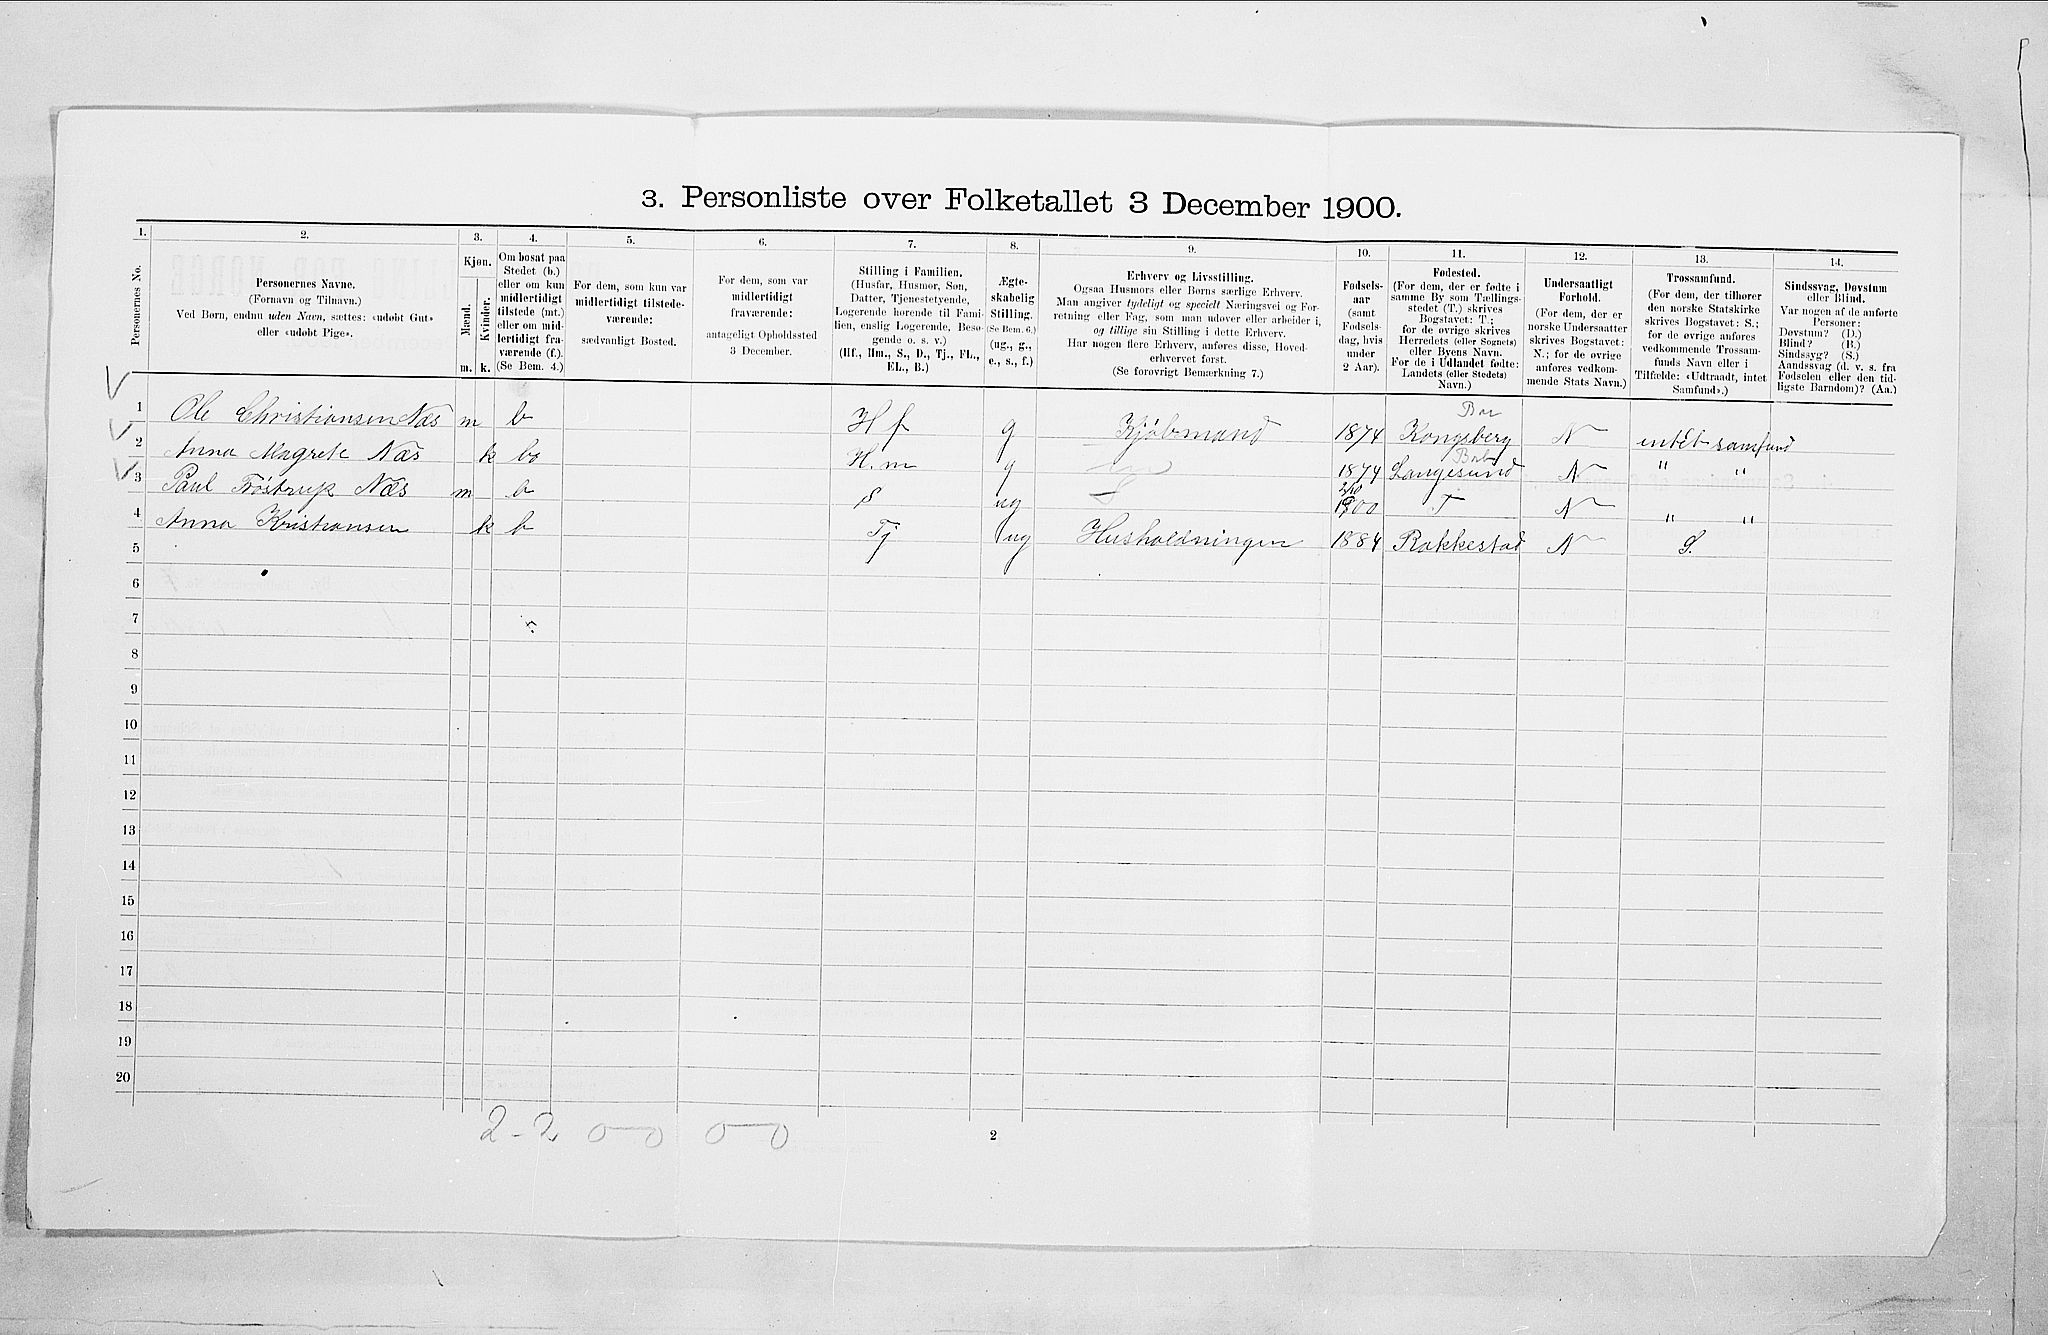 3. Personliste over Folketallet 3 December 1900.
1. 2. 3. 4. 5. 6. 7. 8. 9. 10. 11. 12. 13. 14.
Personernes No.
Personernes Navne.
(Fornavn og Tilnavn.)
Ved Børn, endnu uden Navn, sættes: «udøbt Gut»
eller «udøbt Pige».
Kjøn.
Mænd.
Kvinder.
m. k.
Om bosat paa
Stedet (b.)
eller om kun
midlertidigt
tilstede (mt.)
eller om mid-
lertidigt fra-
værende (f.).
(Se Bem. 4.)
For dem, som kun var
midlertidigt tilstede-
værende:
sædvanligt Bosted.
For dem, som var
midlertidigt
fraværende:
antageligt Opholdssted
3 December.
Stilling i Familien.
(Husfar, Husmor, Søn,
Datter, Tjenestetyende,
Logerende hørende til Fami-
lien, enslig Logerende, Besø-
gende o. s. v.)
(Hf., Hm., S., D., Tj., FL.,
EL., B.)
Ægte-
skabelig
Stilling.
(Se Bem. 6.)
(ug., g.,
e., s., f.)
Erhverv og Livsstilling.
Ogsaa Husmors eller Børns særlige Erhverv.
Man angiver tydeligt og specielt Næringsvei og For-
retning eller Fag, som man udøver eller arbeider i,
og tillige sin Stilling i dette Erhverv.
Har nogen flere Erhverv, anføres disse, Hoved-
erhvervet først.
(Se forøvrigt Bemærkning 7.)
Fødsels-
aar
(samt
Fødsels-
dag, hvis
under
2 Aar).
Fødested.
(For dem, der er fødte i
samme By som Tællings-
stedet (T.) skrives
Bogstavet: T.;
for de øvrige skrives
Herredets (eller Sognets)
eller Byens Navn.
For de i Udlandet fødte:
Landets (eller Stedets)
Navn.)
Undersaatligt
Forhold.
(For dem, der er
norske Undersaatter
skrives Bogstavet:
N.; for de øvrige
anføres vedkom-
mende Stats Navn.)
Trossamfund.
(For dem, der tilhører
den norske Statskirke
skrives Bogstavet: S.;
for de øvrige anføres
vedkommende Trossam-
funds Navn eller i
Tilfælde: «Udtraadt, intet
Samfund».)
Sindssvag, Døvstum
eller Blind.
Var nogen af de anførte
Personer:
Døvstum? (D.)
Blind? (B.)
Sindssyg? (S.)
Aandssvag (d. v. s. fra
Fødselen eller den tid-
ligste Barndom)? (Aa.)
1 Ole Christiansen Næs m b Hf g Kjøbmand 1874 Kongsberg N intet samfund
2 Anna Magrete Næs k b H.m g 1874 Langesund N " "
3 Paul Trøstrup Næs m b S ug 1900 T N " "
4 Anna Kristiansen k b Tj ug Husholdningen 1884 Rakkestad N S.
5
6
7
8
9
10
11
12
13
14
15
16
17
18
19
20
2-2 0—0 0—0
2